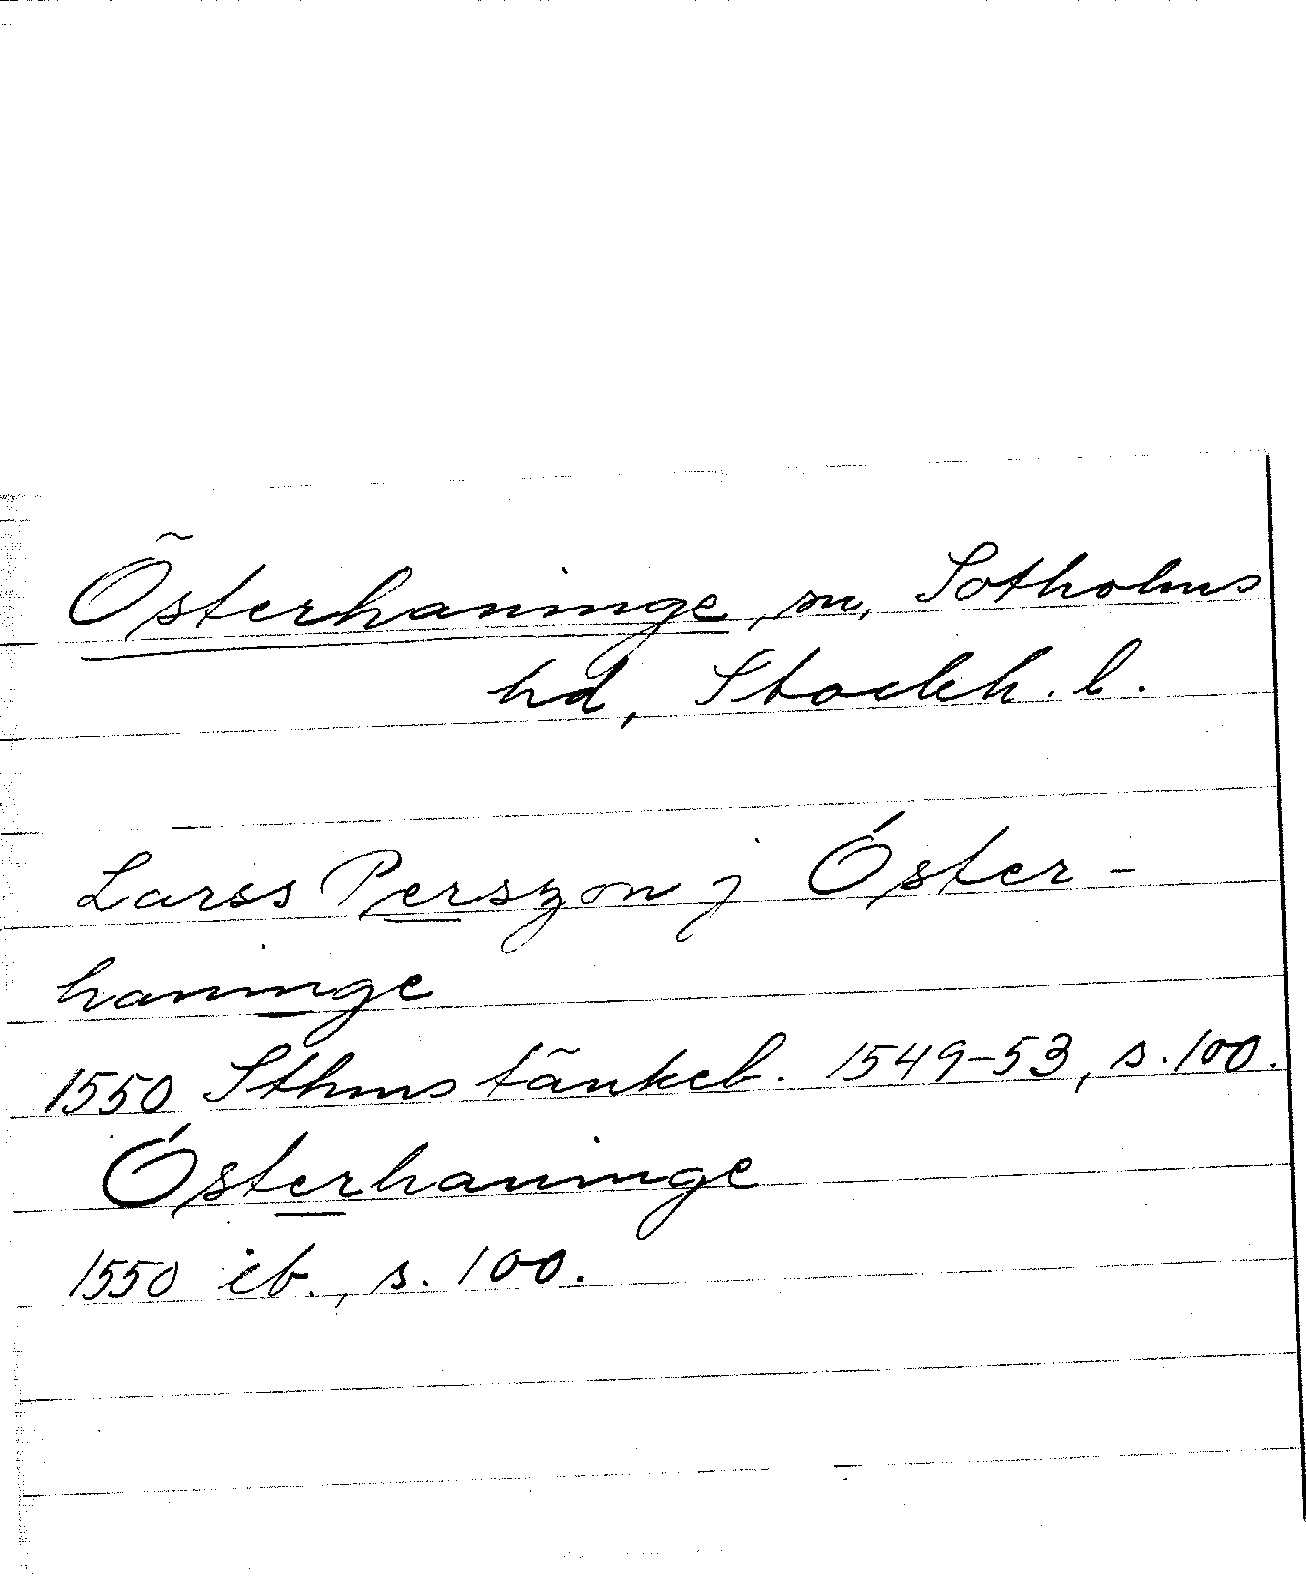 Österhaninge, sn, Sotholms
hd, Stockh. l.
Larss Perszon j Óster-
haninge
1550 Sthms tänkeb. 1549-53, s. 100.
Ósterhaninge
1550 ib., s. 100.